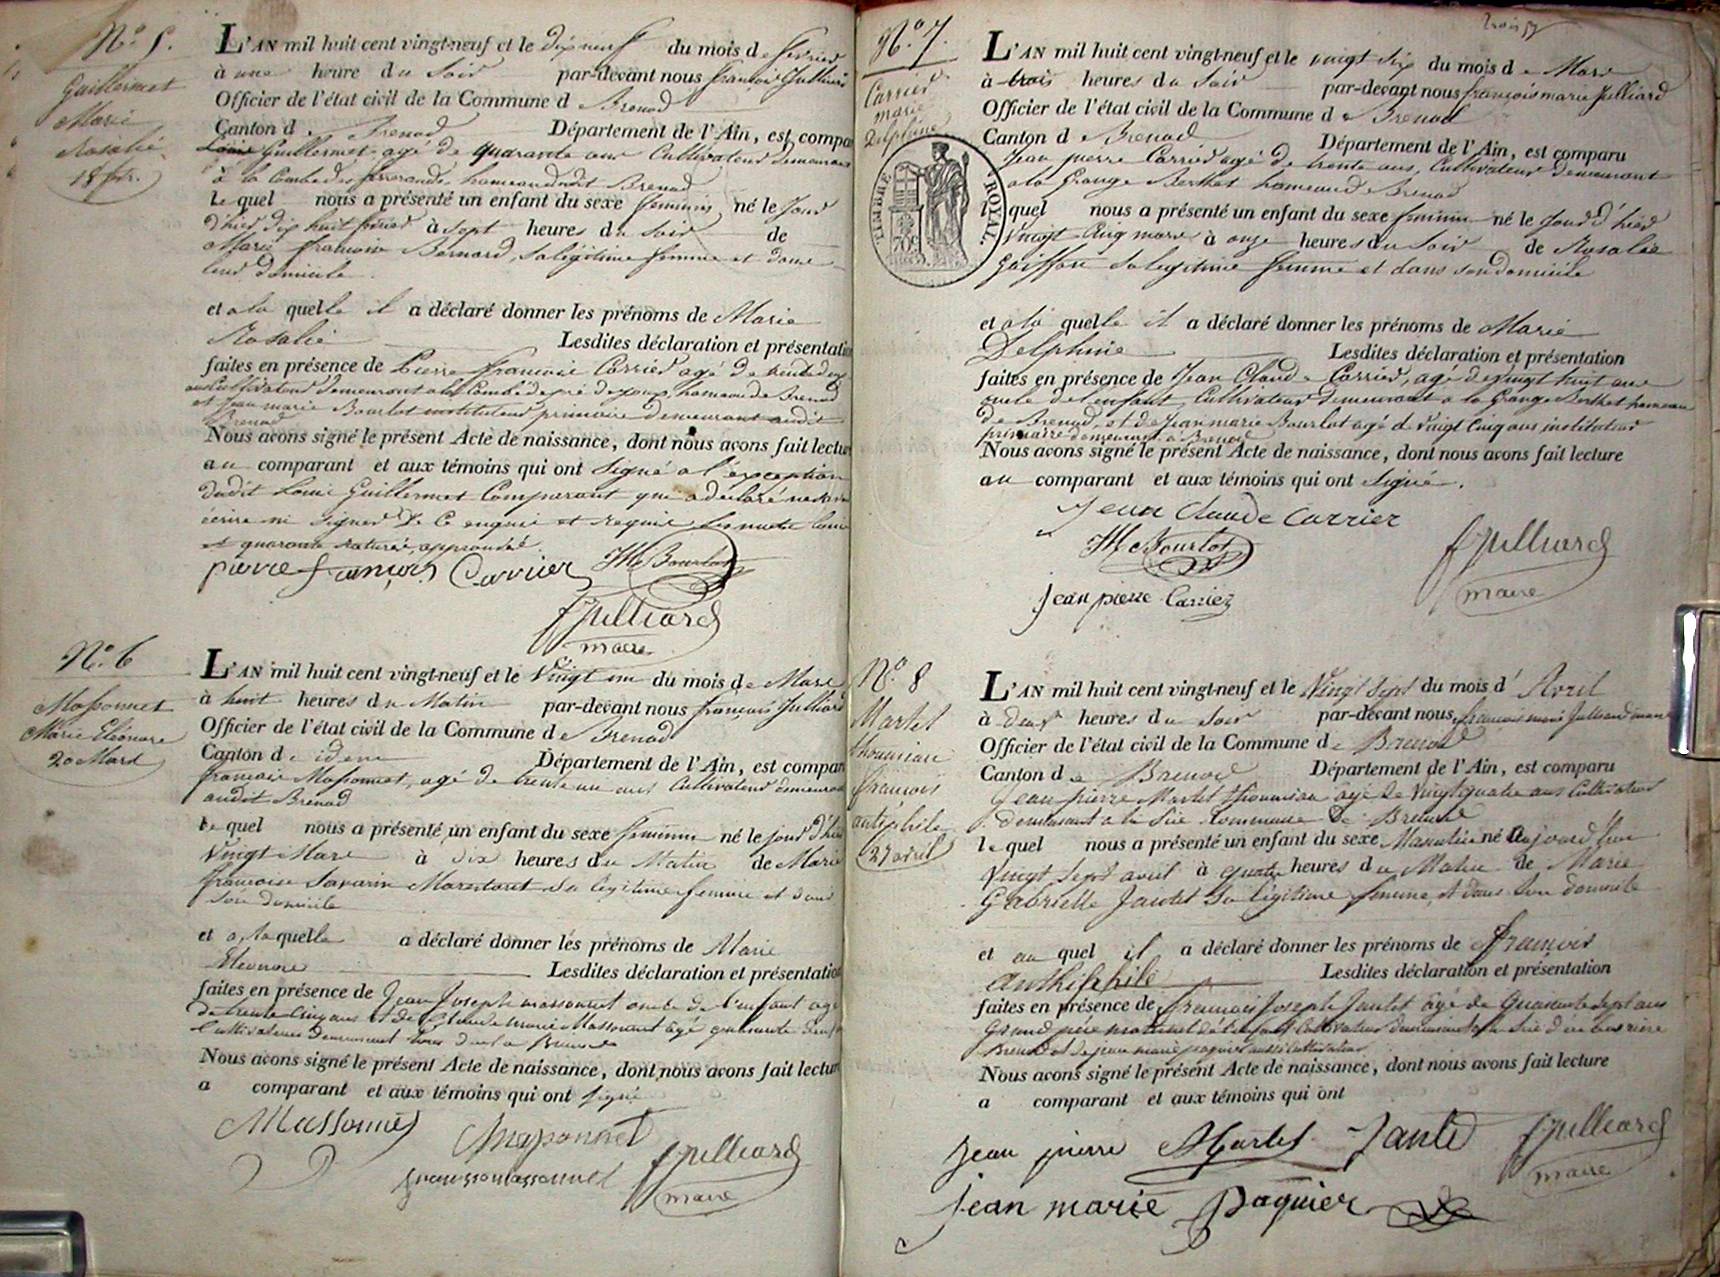 N.º 5.
Guillermet
Marie
Rosalie
18 fév.
L'AN mil huit cent vingt-neuf et le dix neuf du mois de février
à une heure du Soir par-devant nous françois Julliard
Officier de l'état civil de la Commune de Brenod
Canton de Brenod Département de l'Ain, est compa
Louis Guillermet agé de quarante ans Cultivateur demeurant
à la Combe des hameau dudit Brenod
le quel nous a présenté un enfant du sexe féminin né le Jour
d'hier dix huit février à Sept heures du Soir de
Marie françoise Bernard, Sa légitime femme et dans
leur domicile
et a la quelle il a déclaré donner les prénoms de Marie
Rosalie Lesdites déclaration et présentatio
faites en présence de Pierre françois Carrier agé de trente deux
ans Cultivateur demeurant a la Combe hameau de Brenod
et Jean marie Bourlot instituteur primaire demeurant audit
Brenod
Nous avons signé le présent Acte de naissance, dont nous avons fait lectur
au comparant et aux témoins qui ont Signé a l'exception
dudit Louis Guillermet Comparant qui a déclaré ne savoir
écrire ni signer De Ce enquis et requis
et quarante raturés approuvés.
pierre françois Carrier JM Bourlot
fJulliard
maire
N.º 6
Massonnet
Marie Eléonore
20 Mars
L'AN mil huit cent vingt-neuf et le Vingt un du mois de Mars
à huit heures du Matin par-devant nous françois Julliard
Officier de l'état civil de la Commune de Brenod
Canton de idem Département de l'Ain, est compar
françois Massonnet, agé de trente un ans Cultivateur demeurant
audit Brenod
le quel nous a présenté un enfant du sexe féminin né le jour d'hier
Vingt Mars à dix heures du Matin de Marie
françoise Savarin Sa légitime femme et dans
Son domicile
et a la quelle a déclaré donner les prénoms de Marie
Eleonore Lesdites déclaration et présentation
faites en présence de Jean Joseph massonnet oncle de l'enfant agé
de trente Cinq ans et de Claude marie Massonnet agé quarante deux
Cultivateurs Demeurant tous deux a Brenod
Nous avons signé le présent Acte de naissance, dont nous avons fait lectur
a comparant et aux témoins qui ont signé
Massonnet Massonnet
massonnet fJulliard
maire
N.º 7.
Carrier
marie
Delphine
TIMBRE ROYAL.
70c
L'AN mil huit cent vingt-neuf et le vingt Six du mois de Mars
à trois heures du Soir par-devant nous françois marie Julliard
Officier de l'état civil de la Commune de Brenod
Canton de Brenod Département de l'Ain, est comparu
Jean pierre Carrier agé de trente ans, Cultivateur demeurant
a la Grange Berthet hameau de Brenod
le quel nous a présenté un enfant du sexe féminin né le Jour d'hier
Vingt Cinq mars à onze heures du Soir de Rosalie
Guiffon Sa légitime femme et dans son domicile
et a la quelle il a déclaré donner les prénoms de Marie
Delphine Lesdites déclaration et présentation
faites en présence de Jean Claude Carrier, agé de vingt huit ans
oncle de l'enfant, Cultivateur demeurant a la Grange Berthet hameau
de Brenod, et de Jean marie Bourlot agé de Vingt Cinq ans instituteur
primaire demeurant à Brenod
Nous avons signé le présent Acte de naissance, dont nous avons fait lecture
au comparant et aux témoins qui ont Signé.
Jean Claude Carrier
JM Bourlot fJulliard
Jean pierre Carriez maire
N.º 8
Martel
thoumian
françois
antiphile
27 avril
L'AN mil huit cent vingt-neuf et le Vingt Sept du mois d' Avril
à deux heures du Soir par-devant nous françois marie Julliard maire
Officier de l'état civil de la Commune de Brenod
Canton de Brenod Département de l'Ain, est comparu
Jean pierre Martel thoumian agé de Vingt quatre ans Cultivateur
demeurant a la Scie Commune de Brenod
le quel nous a présenté un enfant du sexe Masculin né Aujourd'hui
Vingt Sept avril à quatre heures du Matin de Marie
Gabrielle Jantet Sa légitime femme, et dans Son domicile
et au quel il a déclaré donner les prénoms de françois
Anthiphile Lesdites déclaration et présentation
faites en présence de françois Joseph Jantet agé de Quarante Sept ans
Grand père maternel de l'enfant Cultivateur demeurant a la Scie
Brenod et de jean marie paquier aussi Cultivateur
Nous avons signé le présent Acte de naissance, dont nous avons fait lecture
a comparant et aux témoins qui ont
Jean pierre Martel Jantet fJulliard
maire
Jean marie Paquier